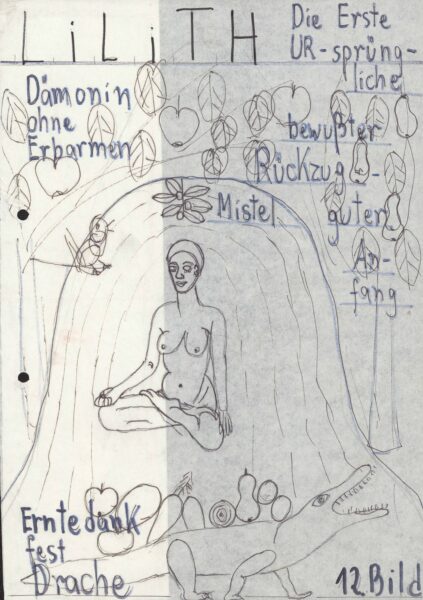 LiLiTH
Die Erste
UR-sprüng-
liche
Dämonin
ohne
Erbarmen
bewußter
Rückzug -
guter
An-
fang
Mistel
Erntedank
fest
Drache
12.Bild